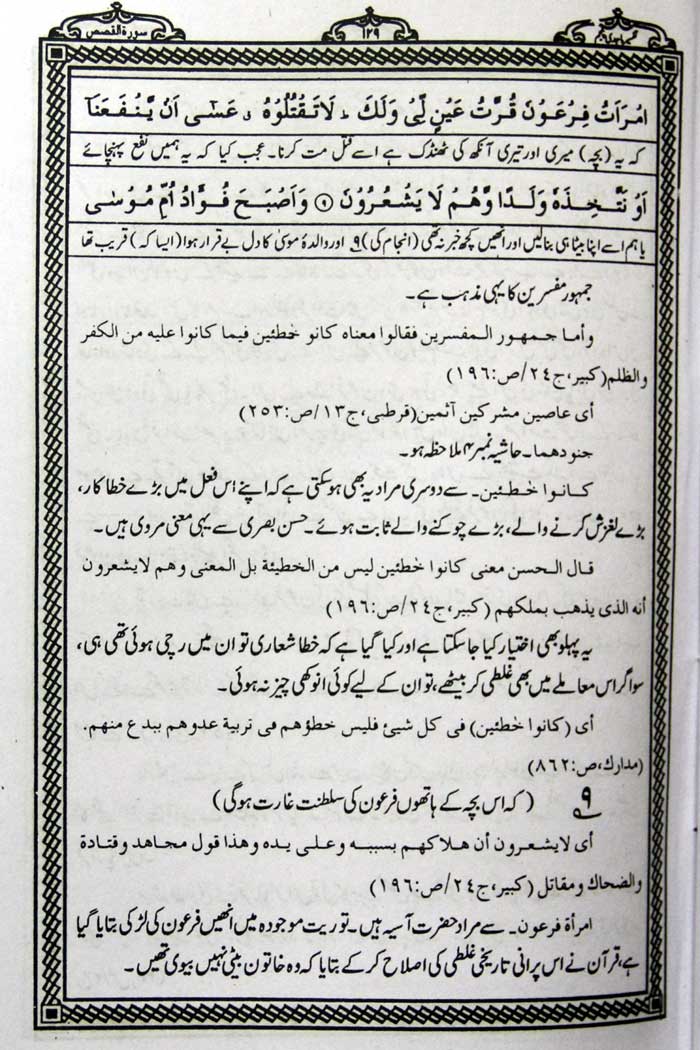 سورة القصص
۱۲۹
امْرَاَتُ فِرْعَوْنَ قُرَّتُ عَيْنٍ لِّىْ وَلَكَ ؕ لَا تَقْتُلُوْهُ ۖ عَسٰٓى اَنْ يَّنْفَعَنَآ
کہ یہ (بچہ) میری اور تیری آنکھ کی ٹھنڈک ہے اسے قتل مت کرنا۔ عجب کیا کہ یہ ہمیں نفع پہنچائے
اَوْ نَتَّخِذَهٗ وَلَدًا وَّهُمْ لَا يَشْعُرُوْنَ ﴿۹﴾ وَاَصْبَحَ فُؤَادُ اُمِّ مُوْسٰى
یا ہم اسے اپنا بیٹا ہی بنالیں اور انھیں کچھ خبر نہ تھی (انجام کی) ۹ اور والدۂ موسیٰ کا دل بے قرار ہوا (ایسا کہ) قریب تھا
جمہور مفسرین کا یہی مذہب ہے۔
وأما جمهور المفسرين فقالوا معناه كانو خٰطئين فيما كانوا عليه من الكفر
والظلم (كبير، ج ٢٤/ص:١٩٦)
أى عاصين مشركين آثمين (قرطبى، ج ١٣/ص:٢٥٣)
جنودهما۔ حاشیہ نمبر ۴ ملاحظہ ہو۔
كانوا خٰطئين۔ سے دوسری مراد یہ بھی ہوسکتی ہے کہ اپنے اس فعل میں بڑے خطا کار،
بڑے لغزش کرنے والے، بڑے چوکنے والے ثابت ہوئے۔ حسن بصری سے یہی معنی مروی ہیں۔
قال الحسن معنى كانوا خٰطئين ليس من الخطيئة بل المعنى وهم لايشعرون
أنه الذى يذهب بملكهم (كبير، ج ٢٤/ص:١٩٦)
یہ پہلو بھی اختیار کیا جاسکتا ہے اور کیا گیا ہے کہ خطا شعاری تو ان میں رچی ہوئی تھی ہی،
سو اگر اس معاملے میں بھی غلطی کر بیٹھے، تو ان کے لیے کوئی انوکھی چیز نہ ہوئی۔
أى (كانوا خٰطئين) فى كل شيئ فليس خطؤهم فى تربية عدوهم ببدع منهم.
(مدارك، ص:٨٦٢)
۹ (کہ اس بچہ کے ہاتھوں فرعون کی سلطنت غارت ہوگی)
أى لايشعرون أن هلاكهم بسببه وعلى يده وهذا قول مجاهد وقتادة
والضحاك ومقاتل (كبير، ج ٢٤/ص:١٩٦)
امرأة فرعون۔ سے مراد حضرت آسیہ ہیں۔ توریت موجودہ میں انھیں فرعون کی لڑکی بتایا گیا
ہے، قرآن نے اس پرانی تاریخی غلطی کی اصلاح کر کے بتایا کہ وہ خاتون بیٹی نہیں بیوی تھیں۔